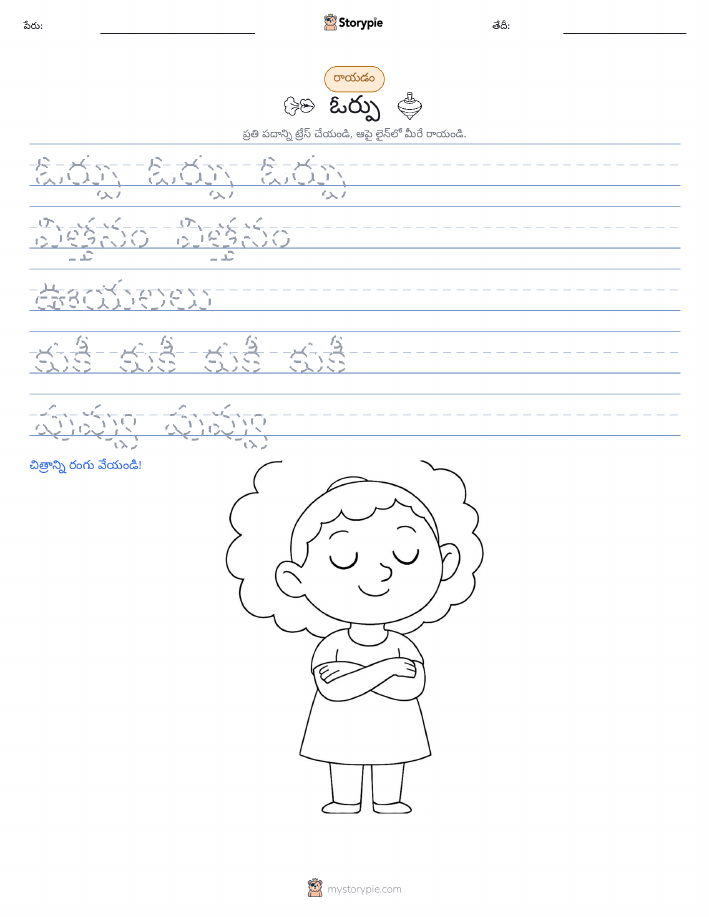 పేరు:
Storypie
తేదీ:
రాయడం
ఓర్పు
ప్రతి పదాన్ని ట్రేస్ చేయండి, ఆపై లైన్‌లో మీరే రాయండి.
ఓర్పు ఓర్పు ఓర్పు
విత్తనం విత్తనం
ఊయలలు
కుకీ కుకీ కుకీ కుకీ
పువ్వు పువ్వు
చిత్రాన్ని రంగు వేయండి!
mystorypie.com